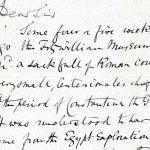 Dear Sir
Some four or five week
go the Fitzwilliam Museum
a sack full of Roman coi
very small, late
the period of Constantine the G
was understood to ha
me from the Egypt Exploration